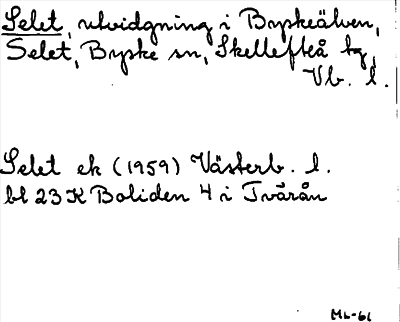 Selet, utvidgning i Byskeälven,
Selet, Byske sn, Skellefteå tg,
Vb. l.
Selet ek (1959) Västerb. l.
bl 23 K Boliden 4 i Tvärån
ML-61